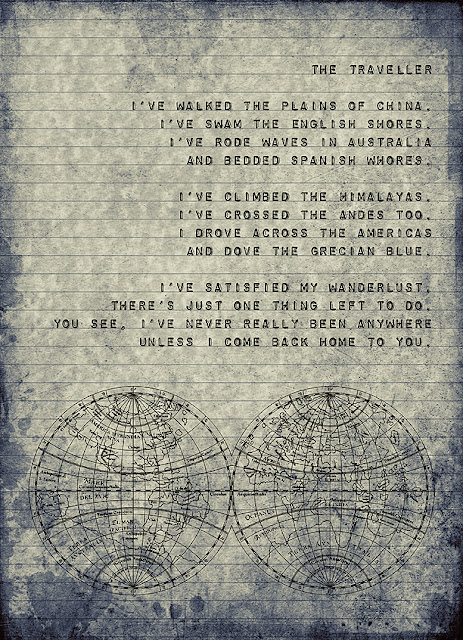 THE TRAVELLER
I'VE WALKED THE PLAINS OF CHINA,
I'VE SWAM THE ENGLISH SHORES,
I'VE RODE WAVES IN AUSTRALIA
AND BEDDED SPANISH WHORES.
I'VE CLIMBED THE HIMALAYAS,
I'VE CROSSED THE ANDES TOO,
I DROVE ACROSS THE AMERICAS
AND DOVE THE GRECIAN BLUE.
I'VE SATISFIED MY WANDERLUST,
THERE'S JUST ONE THING LEFT TO DO,
YOU SEE, I'VE NEVER REALLY BEEN ANYWHERE
UNLESS I COME BACK HOME TO YOU.